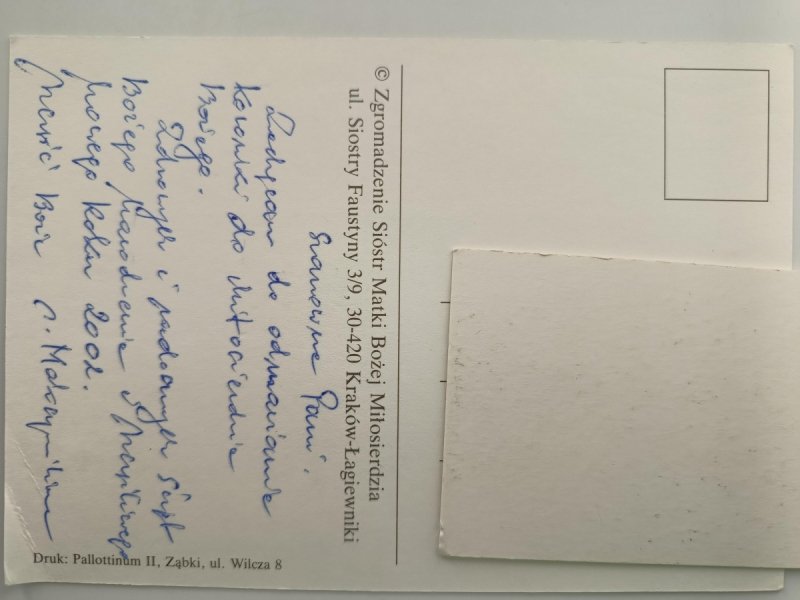 Szanowna Pani.
Zachęcam do odmawiania
Koronki do Miłosierdzia
Bożego.
Zdrowych i radosnych Świąt
Bożego Narodzenia i szczęśliwego
Nowego Roku 2002.
Szczęść Boże s. Maksymiliana
© Zgromadzenie Sióstr Matki Bożej Miłosierdzia
ul. Siostry Faustyny 3/9, 30-420 Kraków-Łagiewniki
Druk: Pallottinum II, Ząbki, ul. Wilcza 8